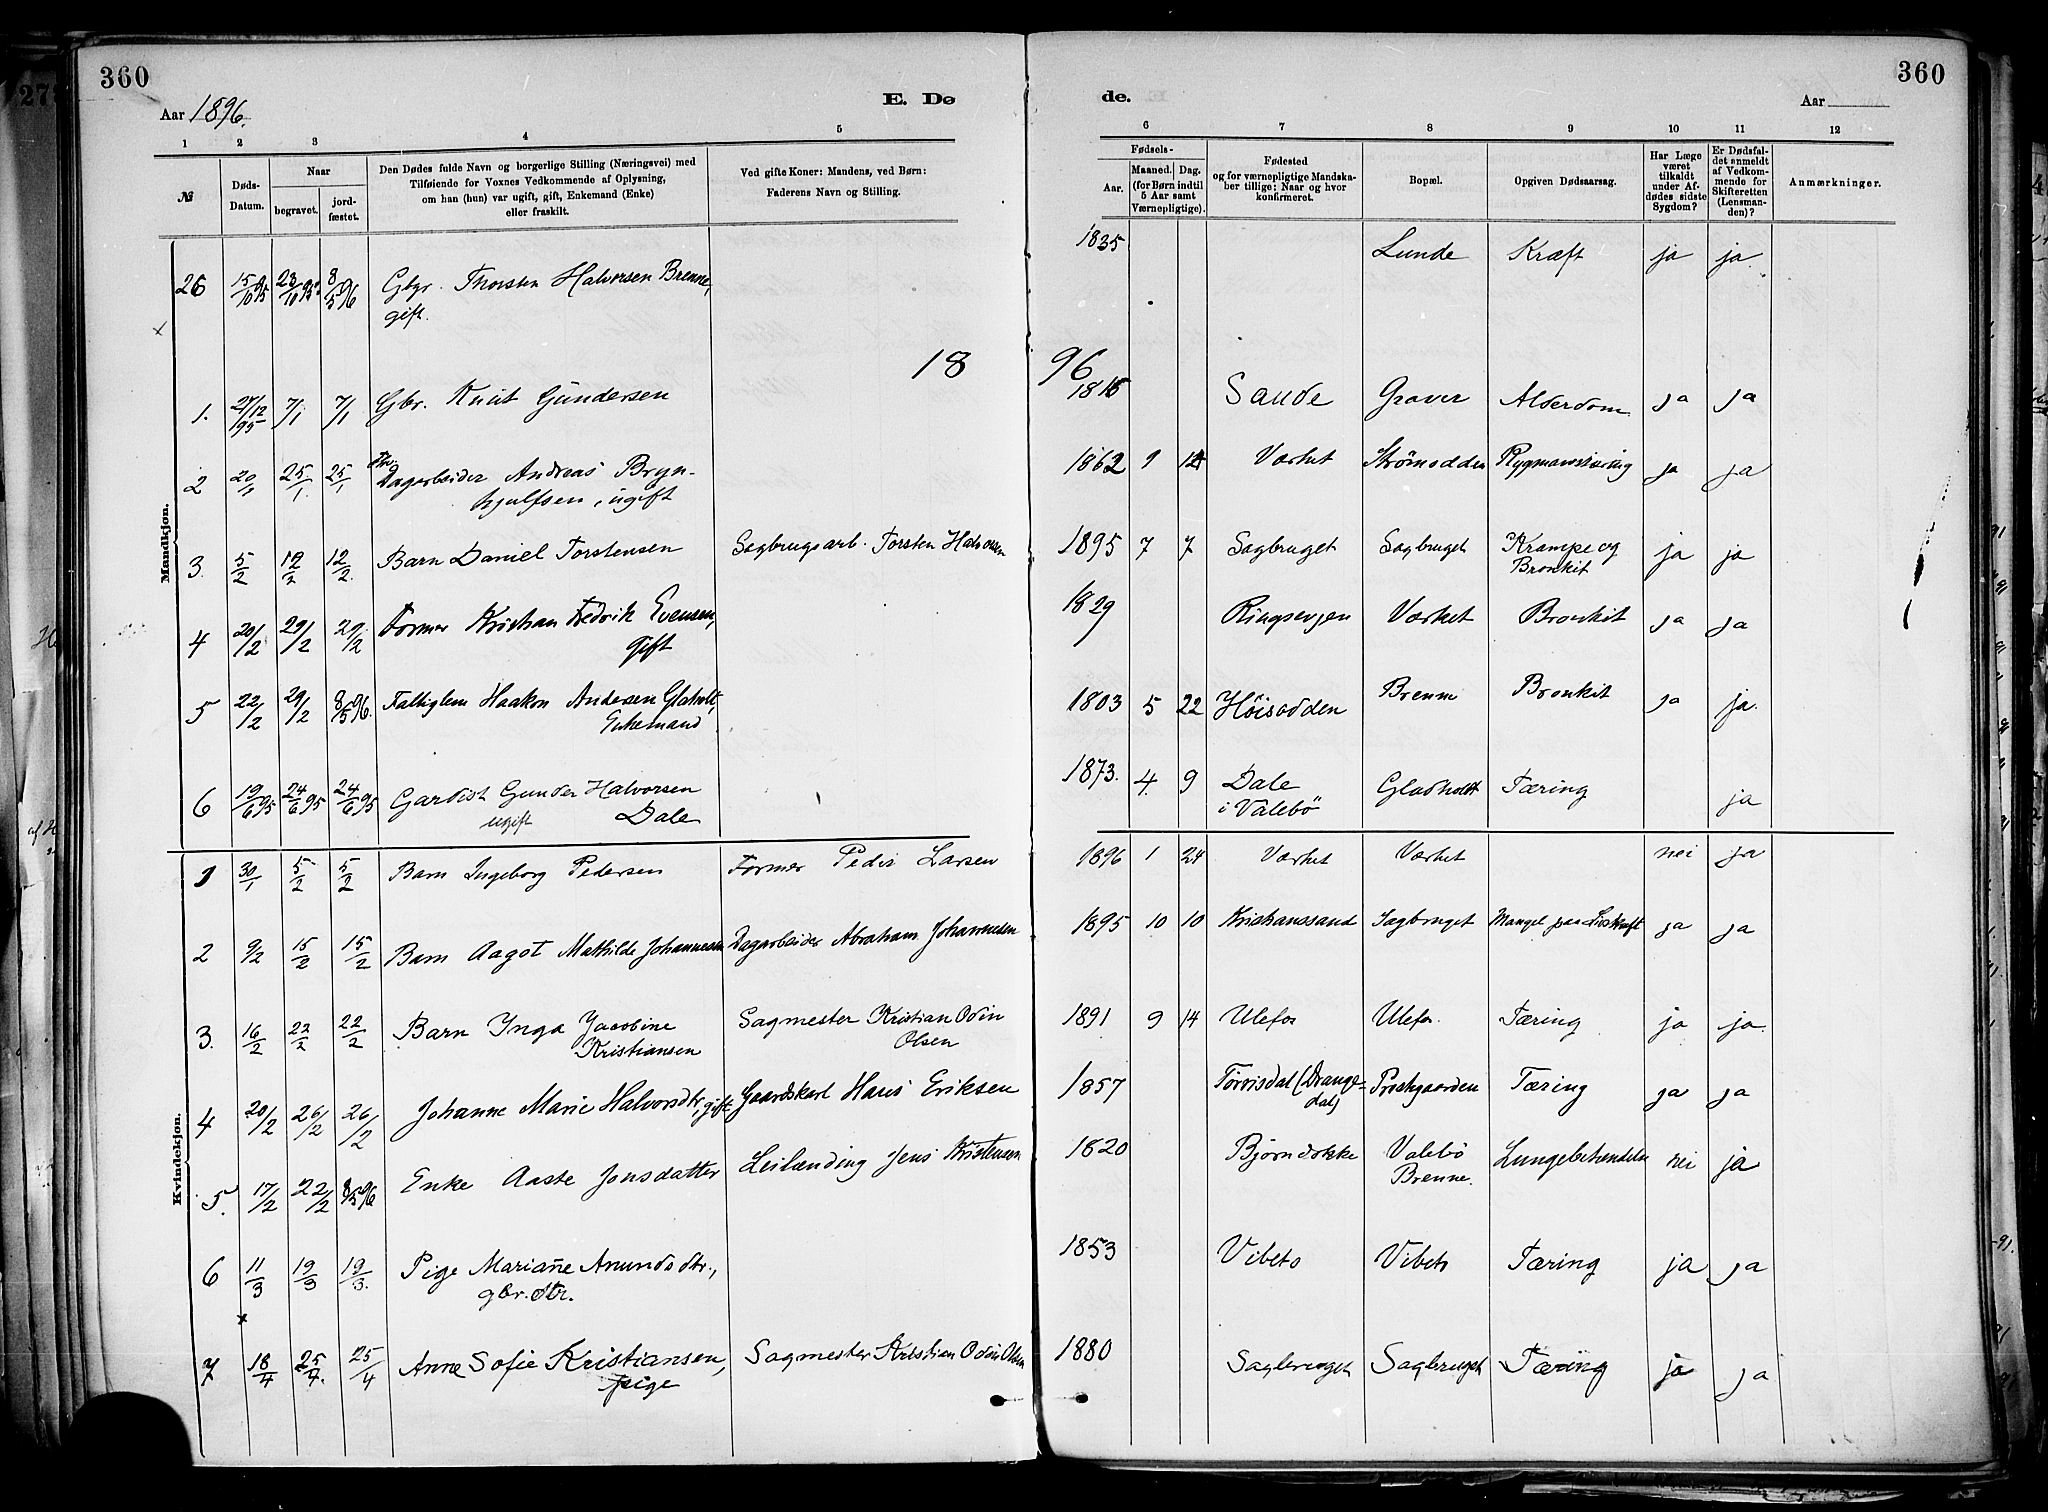 360
360
Aar 1896.
E. Dø
de.
Aar
1 2 3 4 5 6 7 8 9 10 11 12
№
Døds-Datum.
Naar
begravet.
jord-fæstet.
Den Dødes fulde Navn og borgerlige Stilling (Næringsvei) med
Tilføiende for Voxnes Vedkommende af Oplysning,
om han (hun) var ugift, gift, Enkemand (Enke)
eller fraskilt.
Ved gifte Koner: Mandens, ved Børn:
Faderens Navn og Stilling.
Fødsels-
Aar.
Maaned. Dag.
(for Børn indtil
5 Aar samt
Værnepligtige).
Fødested
og for værnepligtige Mandska-
ber tillige: Naar og hvor
konfirmeret.
Bopæl.
Opgiven Dødsaarsag.
Har Læge
været
tilkaldt
under Af-
dødes sidste
Sygdom?
Er Dødsfal-
det anmeldt
af Vedkom-
mende for
Skifteretten
(Lensman-
den)?
Anmærkninger.
Mandkjøn.
26 15/10 95 23/10 95 8/5 96 Gbr. Thorsten Halvorsen Brenne, 1835 Lunde Kræft ja ja.
gift.
18 96
1. 27/12 95 7/1 7/1 Gbr. Knut Gundersen 1815 Sande Graver Alderdom ja ja
2 20/1 25/1 25/1 Dagarbeider Andreas Bryn- 1862 9 Værket Strømodden Rygmarvstæring ja ja
hjulfsen, ugift
3. 5/2 12/2 12/2 Barn Daniel Torstensen Sagbrugsarb. Torsten Halvorsen 1895 7 7 Sagbruget Sagbruget Krampe og ja ja
Bronkit
4 20/2 29/2 29/2 Former Kristian Fredrik Evensen, 1829 Ringsevjen Værket Bronkit ja ja
gift
5 22/2 29/2 8/5 96. Fattiglem Haakon Andersen Glaholt, 1803 5 22 Høisodden Brenne Bronkit ja ja.
Enkemand
6 19/6 95 24/6 95 24/6 95 Gardist Gunder Halvorsen 1873. 4. 9 Dale Gladholt Tæring ja
ugift Dale i Valebö
Kvindekjøn.
1 30/1 5/2 5/2 Barn Ingeborg Pedersen Former Peder Larsen 1896 1 24 Værket Værket nei ja
2 9/2 15/2 15/2 Barn Aagot Mathilde Johannesen Dagarbeider Abraham Johannesen 1895 10 10 Kristianssand Sagbruget Mangel paa Livskraft ja ja
3. 16/2 22/2 22/2 Barn Inga Jacobine Sagmester Kristian Odin 1891 9 14 Ulefos Ulefos. Tæring ja ja.
Kristiansen Olsen
4 20/2 26/2 26/2 Johanne Marie Halvorsdtr, gift Gaardskarl Hans Eriksen 1857 Tørrisdal (Drange- Prestgaarden Tæring ja ja
dal)
5. 17/2 22/2 8/5 96 Enke Aaste Jonsdatter Leilænding Jens Kristensen 1820 Bjørndokke Valebö Lungebetændelse nei ja
Brenne.
6 11/3 19/3 19/3. Pige Mariane Anundsdtr., 1853 Vibeto Vibeto Tæring ja ja
gbr. dtr.
7 18/4 25/4. 25/4 Anne Sofie Kristiansen, Sagmester Kristian Odin Olsen 1880 Sagbruget Sagbruget Tæring ja ja
pige